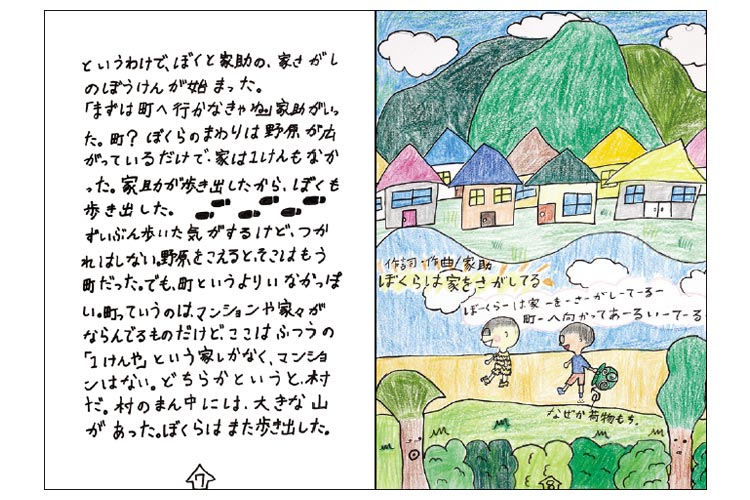 というわけで、ぼくと家助の、家さがし
のぼうけんが始まった。
「まずは町へ行かなきゃね。」家助がいっ
た。町？ぼくらのまわりは野原が広
がっているだけで、家は1けんもなか
った。家助が歩き出したから、ぼくも
歩き出した。
ずいぶん歩いた気がするけど、つか
れはしない。野原をこえると、そこはもう
町だった。でも、町というよりいなかっぽ
い。町っていうのは、マンションや家々が
ならんでるものだけど、ここはふつうの
「1けんや」という家しかなく、マンショ
ンはない。どちらかというと、村
だ。村のまん中には、大きな山
があった。ぼくらはまた歩き出した。
7
作詞・作曲/家助
ぼくらは家をさがしてる
ぼーくらーは家ーをーさーがしーてーるー
町ーへ向かってあーるいーてーるー
なぜか荷物もち。
8